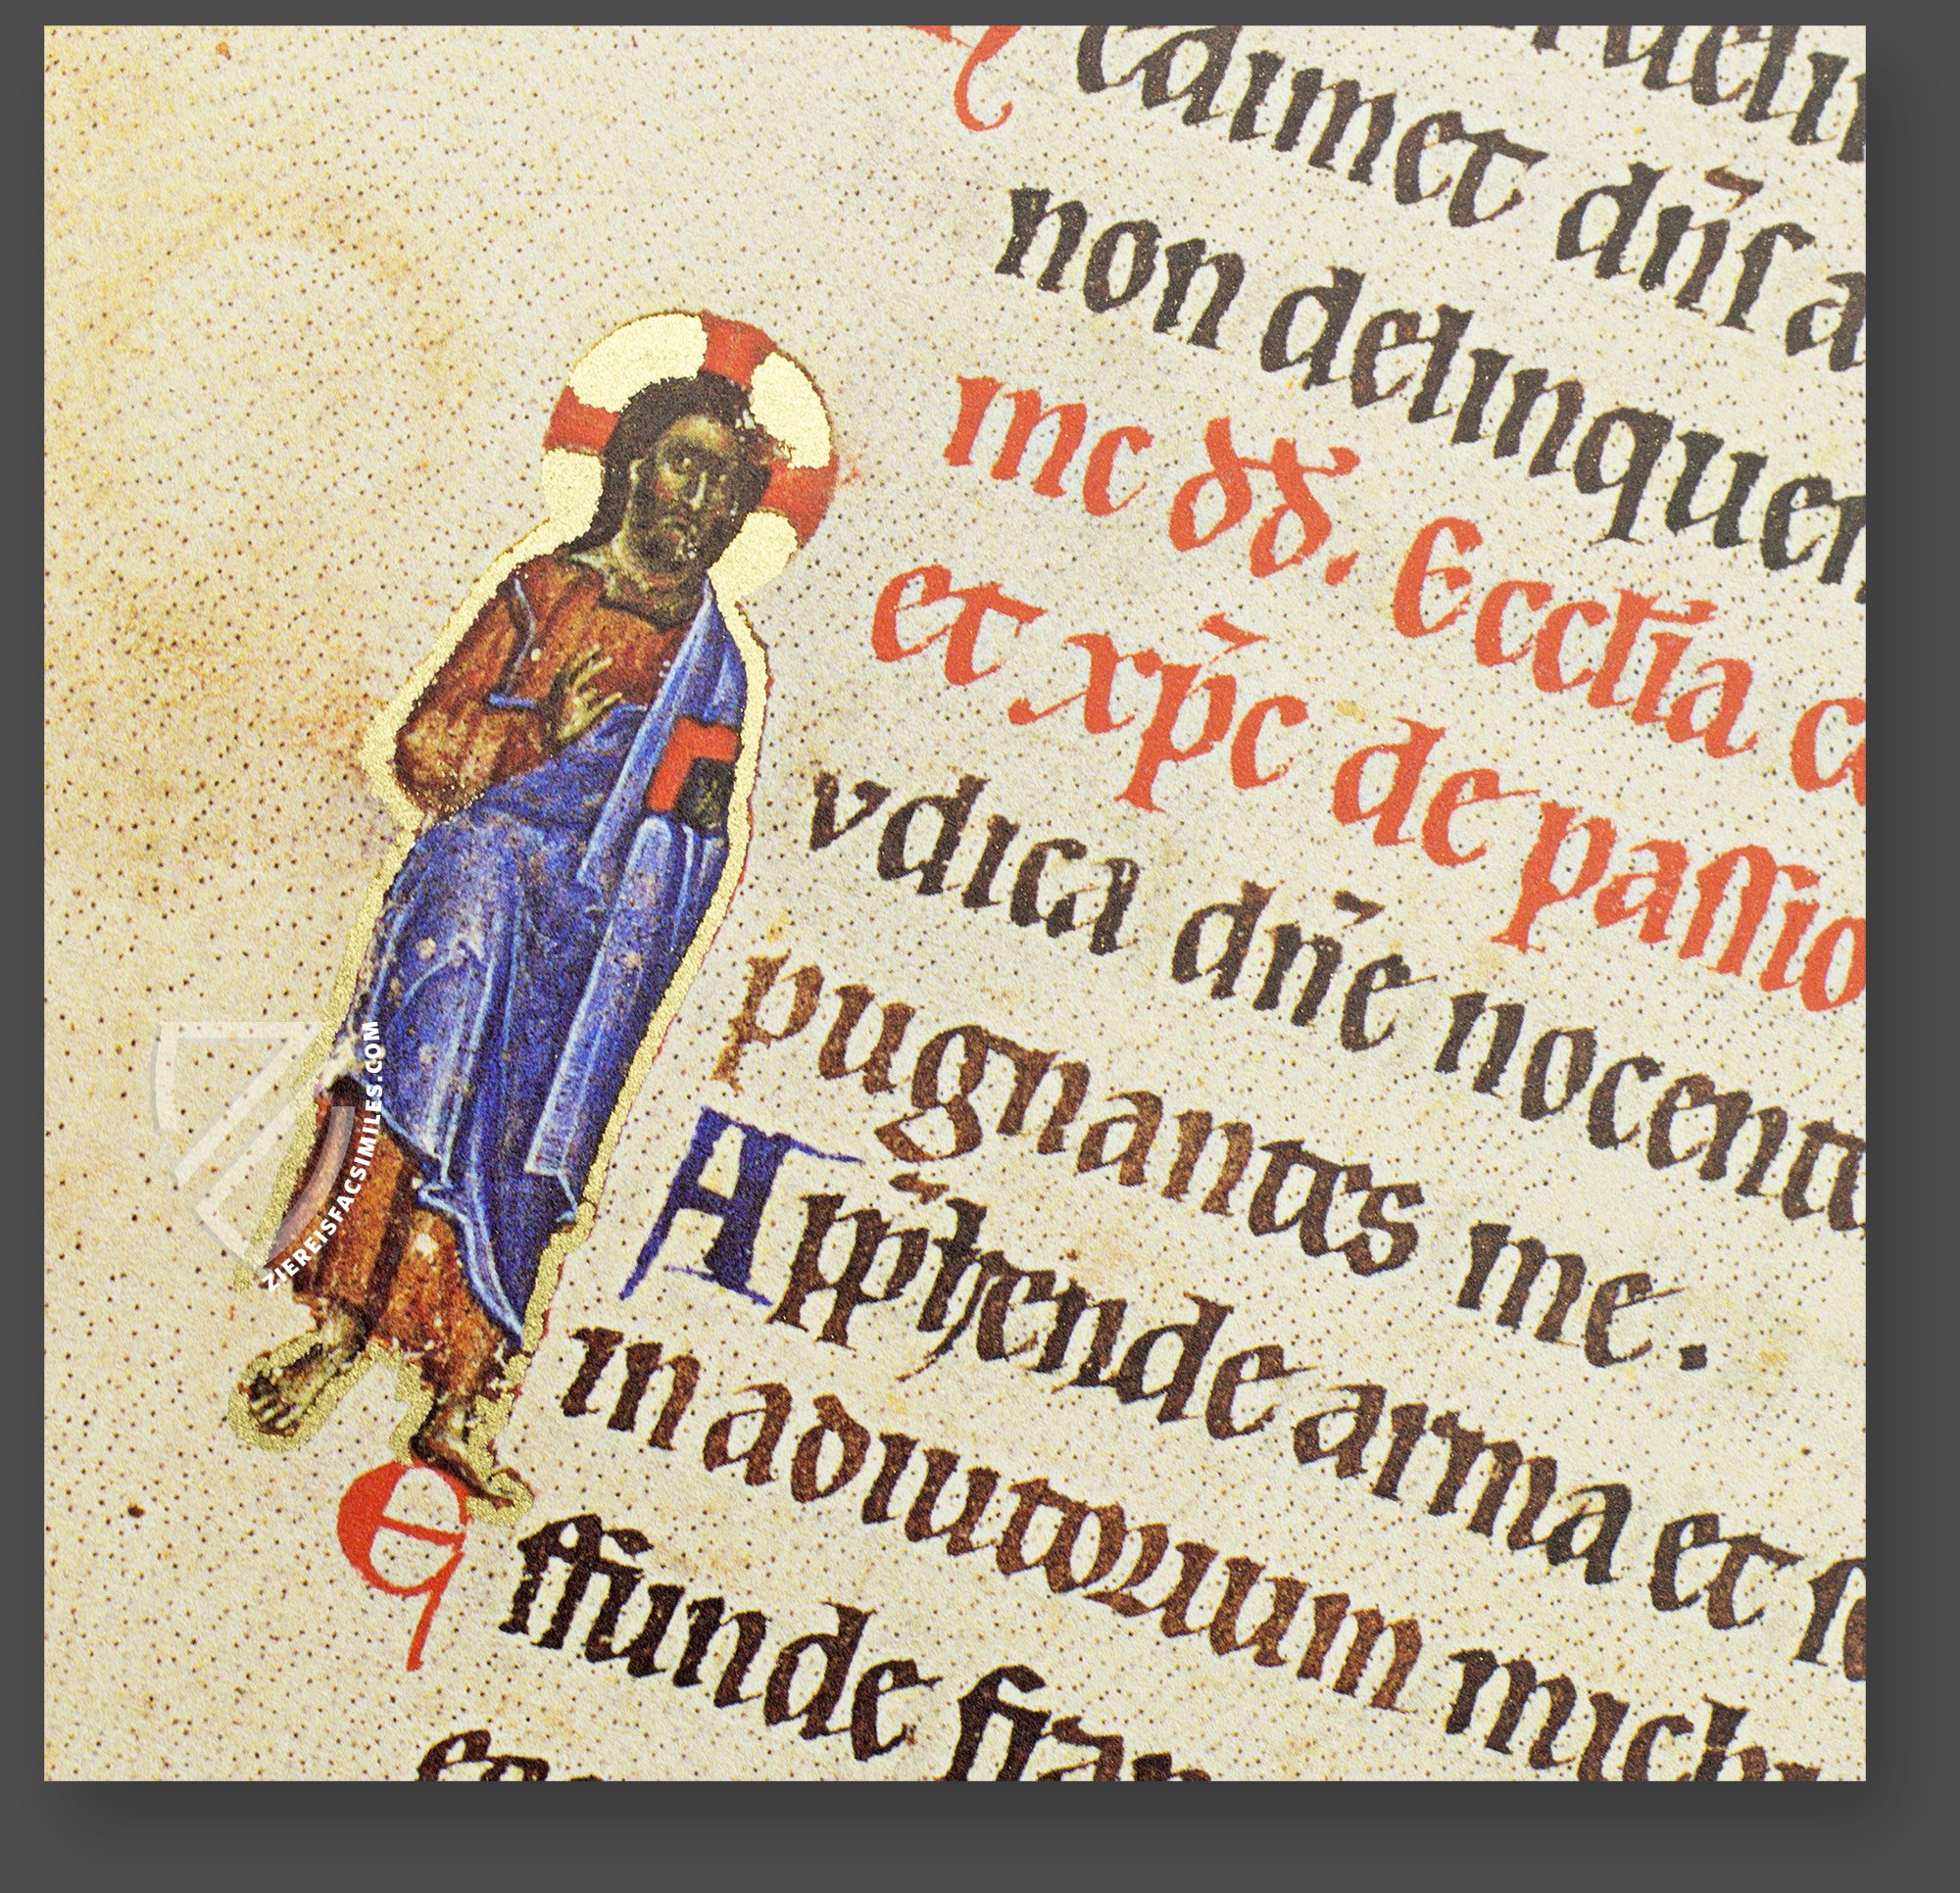 edimet dn̄s a
non delinquen
inc dd̄. Eccl̄ia c
et xp̄c de passio
vdica dn̄e nocent
pugnantes me.
App̄hende arma et s
in adiutorium mich
Effunde fram
ZIEREISFACSIMILES.COM